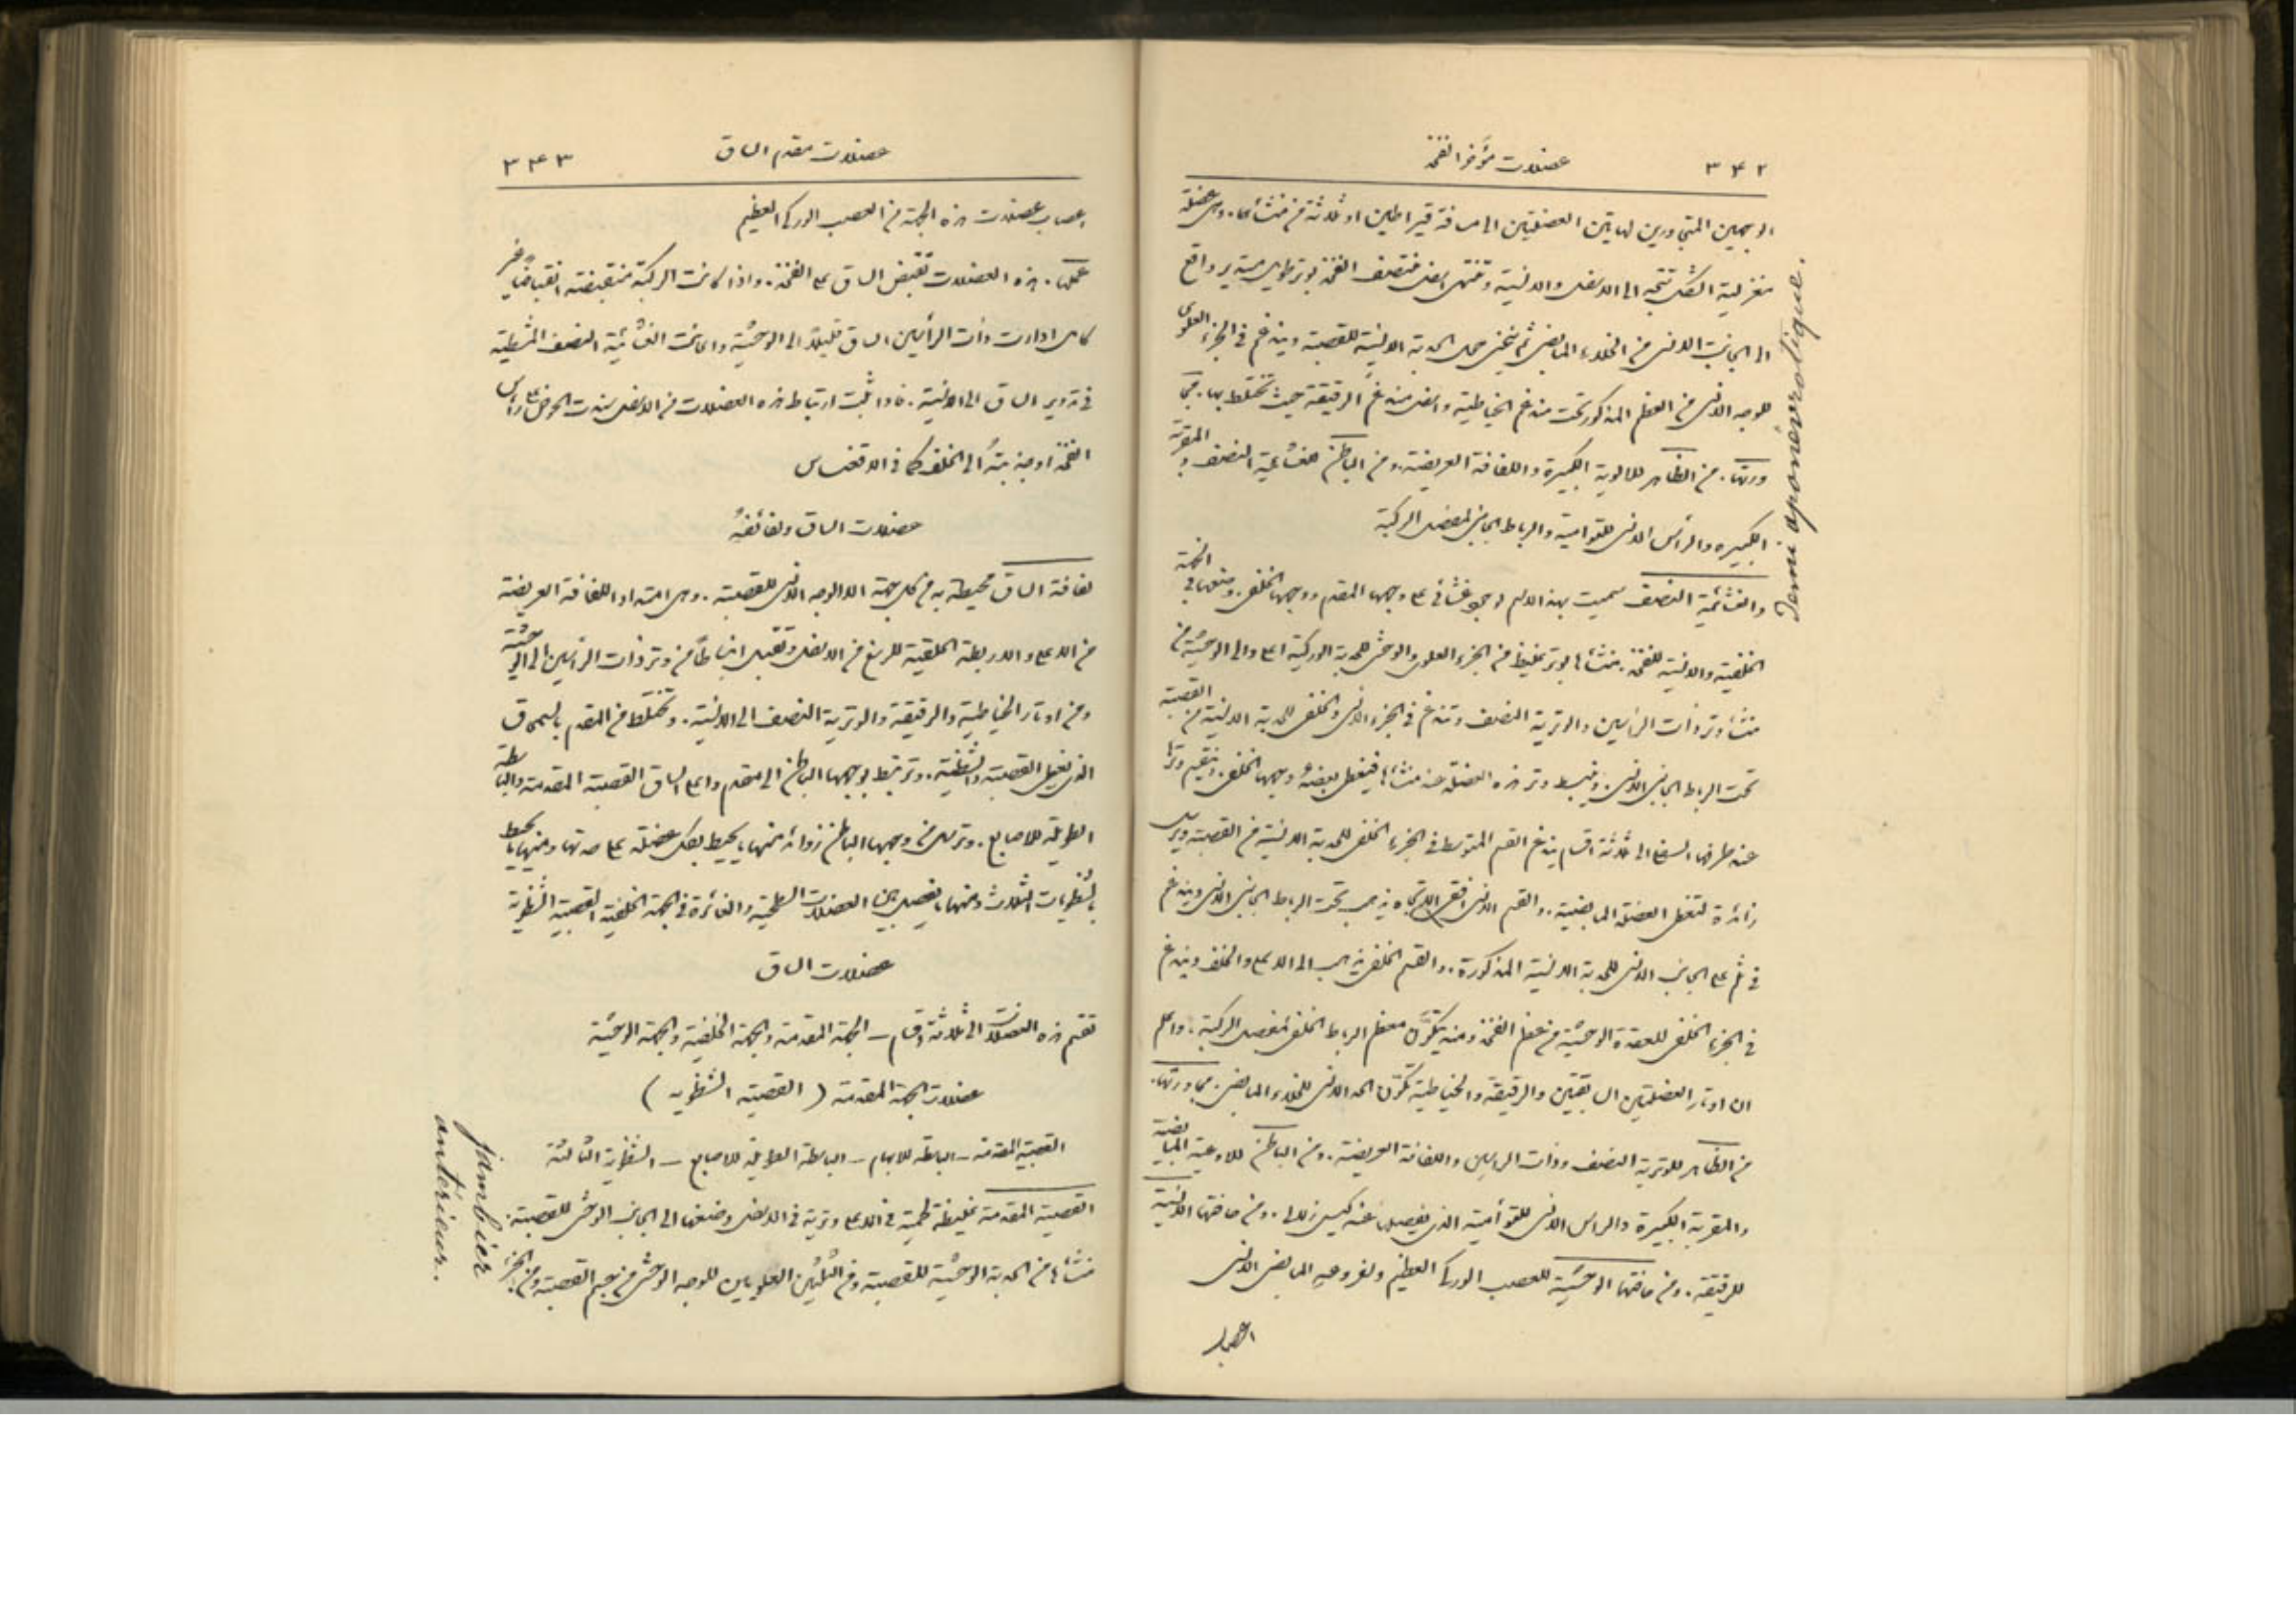 ٣٤٢
عضلات مؤخر الفخذ
الوجهين المتجاورين لهاتين العضلتين الى مسافة قيراطين او ثلاثة من منشأهما. وهى عضلة
مغزلية الشكل تتجه الى الاسفل والانسية وتنتهى اسفل منتصف الفخذ بوتر طويل مستدير واقع
الى الجانب الانسى من الخلاء المابضى ثم ينحنى حول الحدبة الانسية للقصبة ويندغم فى الجزء العلوى
للوجه الانسى من العظم المذكور تحت مندغم الخياطية واسفل مندغم الرقيقة حيث تختلط بها. مجا
ورتها. من الظاهر للالوية الكبيرة واللفافة العريضة. ومن الباطن للغشائية النصف والمقربة
الكبيرة والرأس الانسى للتوأمية والرباط الجانبى لمفصل الركبة
والغشائية النصف سميت بهذا الاسم لوجود غشائى على وجهها المقدم ووجهها الخلفى. وضعها فى الجهة
الخلفية والانسية للفخذ. منشأها بوتر غليظ من الجزء العلوى والوحشى للحدبة الوركية اعلى والى الوحشية من
منشأ وتر ذات الرأسين والوترية النصف وتندغم فى الجزء الانسى والخلفى للحدبة الانسية من القصبة
تحت الرباط الجانبى الانسى. وينبسط وتر هذه العضلة عند منشأها فيغطى بعضه وجهها الخلفى. وينقسم وترها
عند طرفها السفلى الى ثلاثة اقسام يندغم القسم المتوسط فى الجزء الخلفى للحدبة الانسية من القصبة ويرسل
زائدة لتغطى العضلة المابضية. والقسم الانسى افقى الاتجاه يذهب تحت الرباط الجانبى الانسى ويندغم
فى ثلم على الجانب الانسى للحدبة الانسية المذكورة. والقسم الخلفى يذهب الى الاعلى والخلف ويندغم
فى الجزء الخلفى للعقدة الوحشية من عظم الفخذ ومنه يتكون معظم الرباط الخلفى لمفصل الركبة. واعلم
ان اوتار العضلتين السابقتين والرقيقة والخياطية تكون الحد الانسى للخلاء المابضى. مجاورتها.
من الظاهر للوترية النصف وذات الرأسين واللفافة العريضة. ومن الباطن للاوعية المابضية
والمقربة الكبيرة والراس الانسى للتوأمية الذى يفصلها عنه كيس زلالى. ومن حافتها الانسية
للرقيقة. ومن حافتها الوحشية للعصب الوركى العظيم ولفروعه المابضى الانسى
اعصاب
Demi aponévrotique.
عضلات مقدم الساق
٣٤٣
اعصاب عضلات هذه الجهة من العصب الوركى العظيم
عملها. هذه العضلات تقبض الساق على الفخذ. واذا كانت الركبة منقبضة انقباضا غير
كامل ادارت ذات الرأسين الساق قليلا الى الوحشية واعانت الغشائية النصف المشطية
فى تدوير الساق الى الانسية. فاذا ثبت ارتباط هذه العضلات من الاسفل سندت الحوض على رأس
الفخذ او جذبته الى الخلف كما فى الاقعنساس
عضلات الساق ولفائفه
لفافة الساق محيطة به من كل جهة الا الوجه الانسى للقصبة. وهى امتداد اللفافة العريضة
من الاعلى والاربطة الحلقية للرسغ من الاسفل وتقبل انبساطا من وتر ذات الرأسين الى الوحشية
ومن اوتار الخياطية والرقيقة والوترية النصف الى الانسية. وتختلط من المقدم بالسمحاق
الذى يغطى القصبة والشظية. وترتبط بوجهها الباطن الى مقدم واعلى الساق القصبية المقدمة والباسطة
الطويلة للاصابع. وترسل من وجهها الباطن زوائد منها ما يحيط بكل عضلة على حدتها ومنها ما يحيط
بالشظويات الثلاث ومنها ما يفصل بين العضلات السطحية والغائرة فى الجهة الخلفية القصبية الشظوية
عضلات الساق
تقسم هذه العضلات الى ثلاثة اقسام – الجهة المقدمة والجهة الخلفية والجهة الوحشية
عضلات الجهة المقدمة (القصبية الشظوية)
القصبية المقدمة – الباسطة للابهام – الباسطة الطويلة للاصابع – الشظوية الثالثة
القصبية المقدمة غليظة لحمية فى الاعلى وترية فى الاسفل وضعها الى الجانب الوحشى للقصبة.
منشأها من الحدبة الوحشية للقصبة ومن الثلثين العلويين للوجه الوحشى من جسم القصبة ومن الجزء
jambier
antérieur.